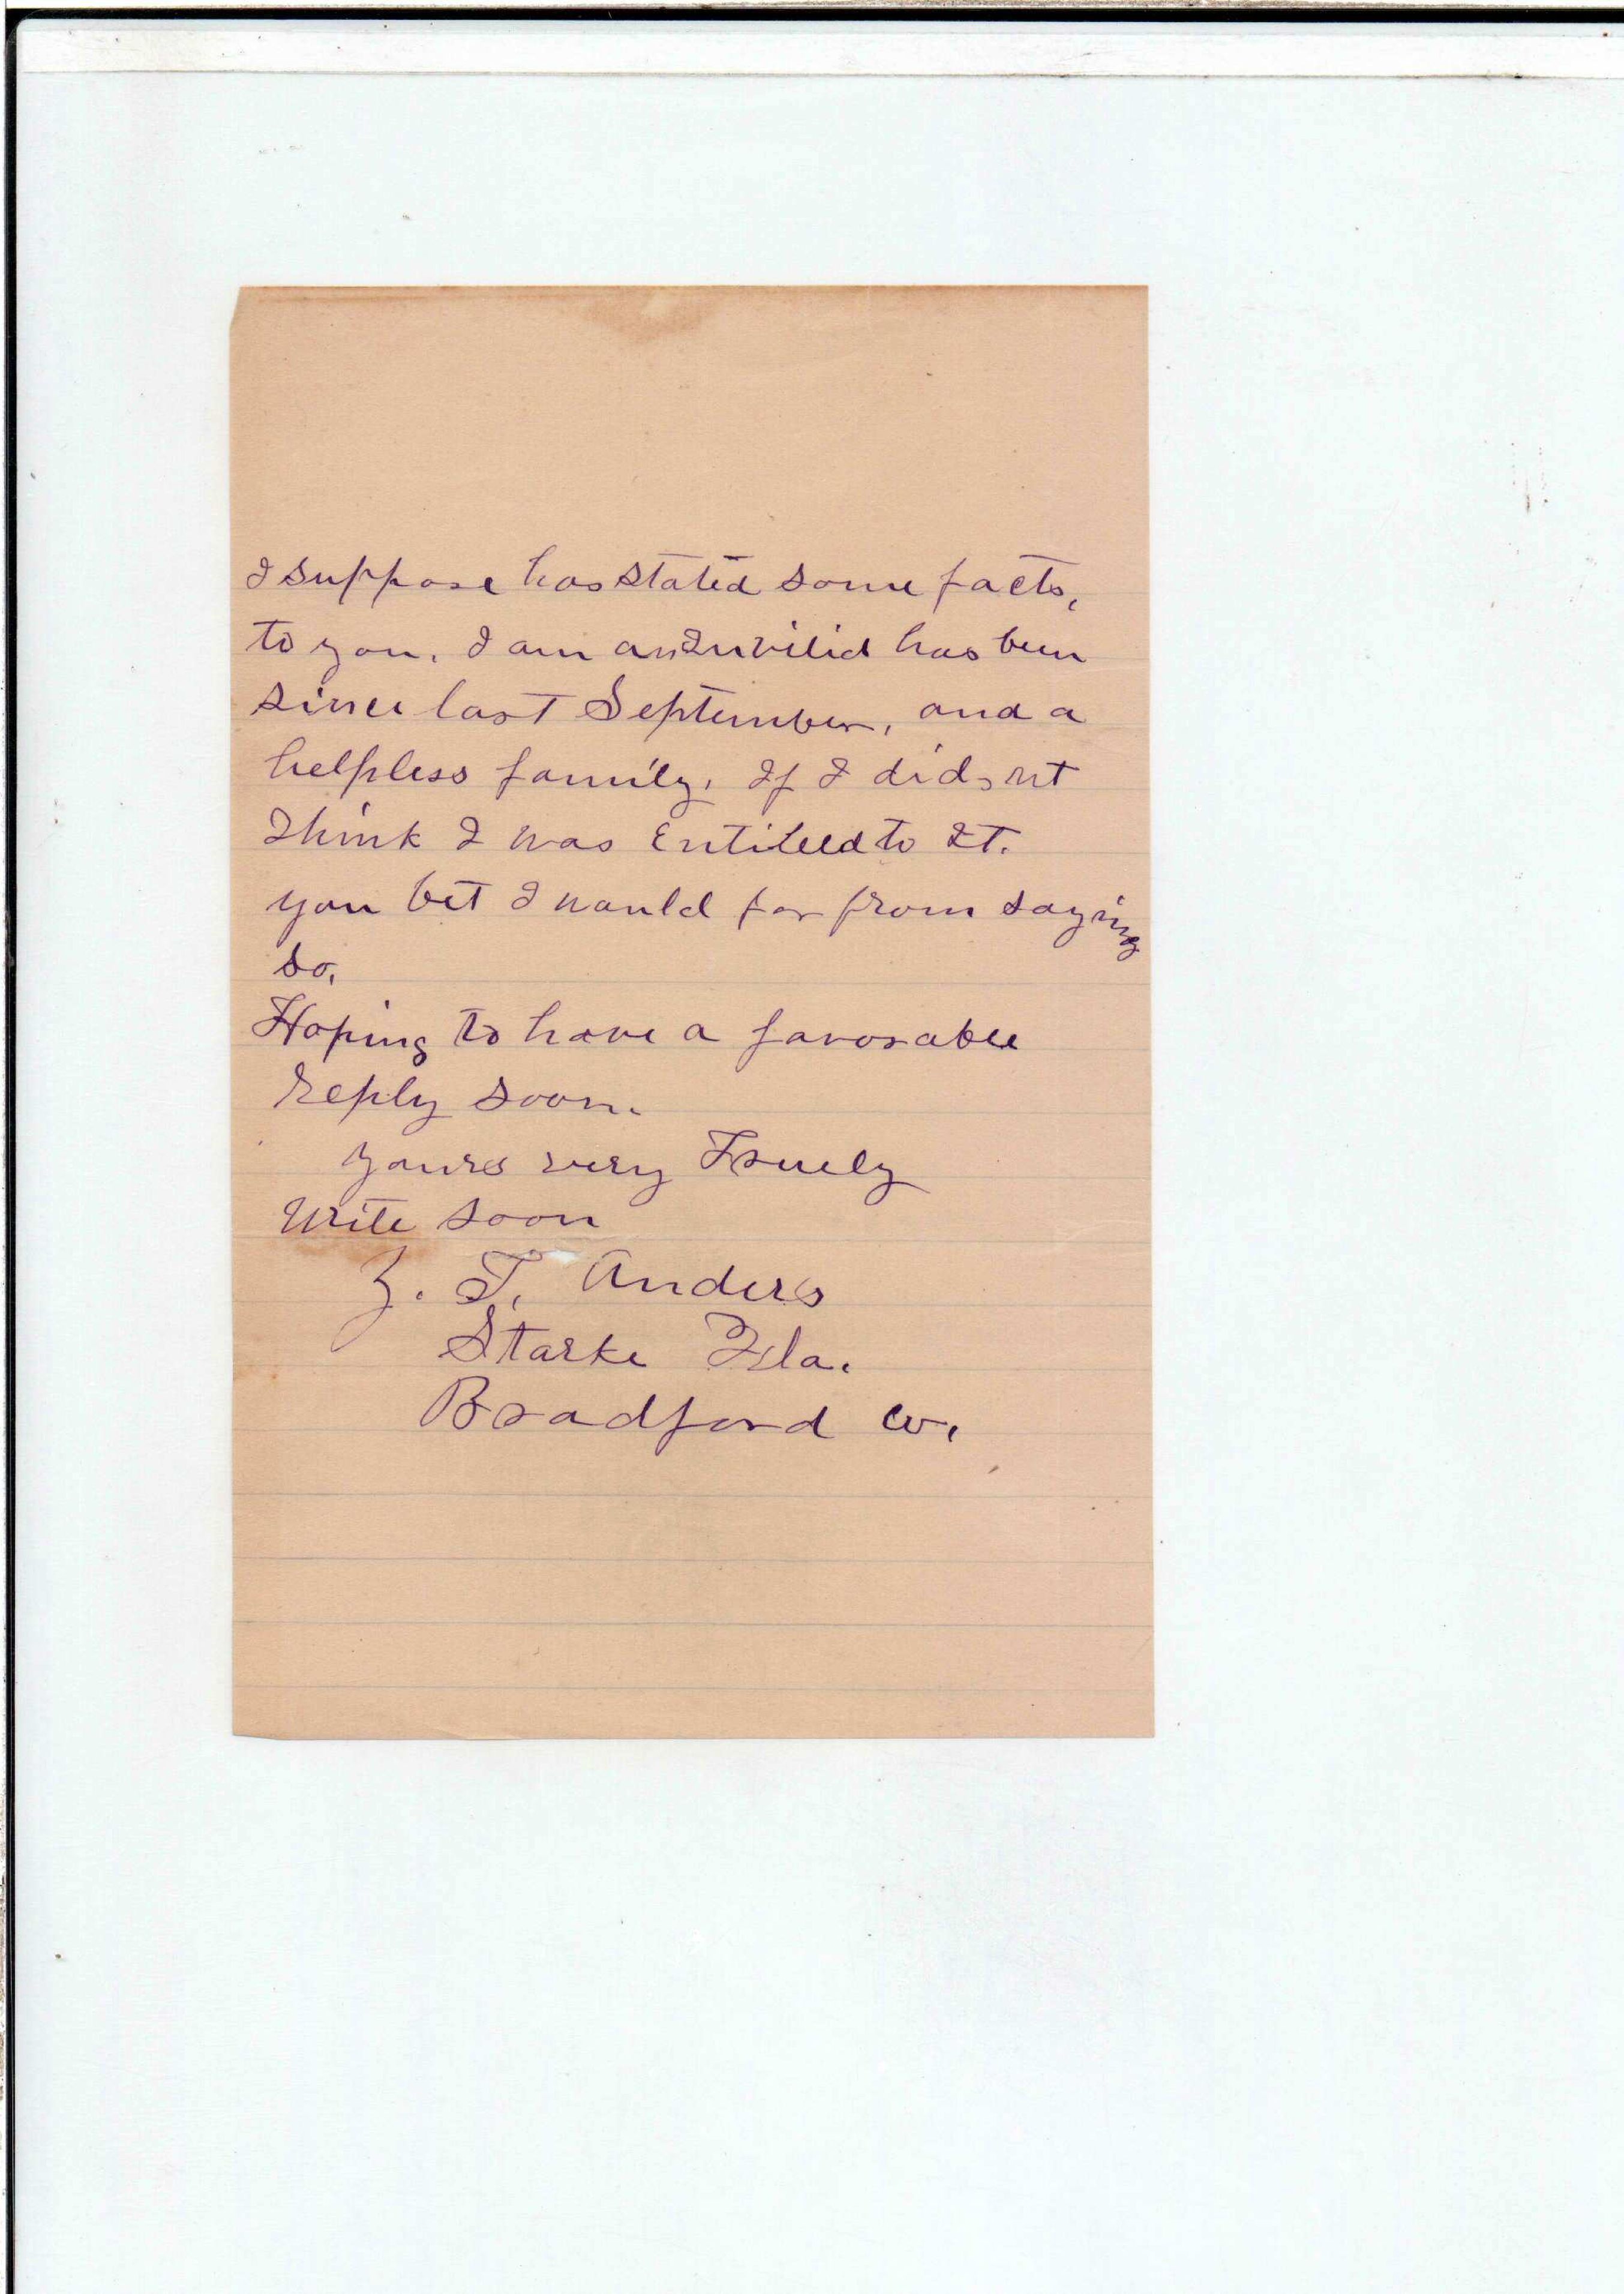 I suppose has stated some facts,
to you. I am an Invilid has been
since last September, and a
helpless family. If I did,nt
Think I was Entitled to It.
you bet I would far from saying
so.
Hoping to have a favorable
reply soon.
yours very Truely
Write soon
Z. T. Anders
Starke Fla.
Bradford Co.